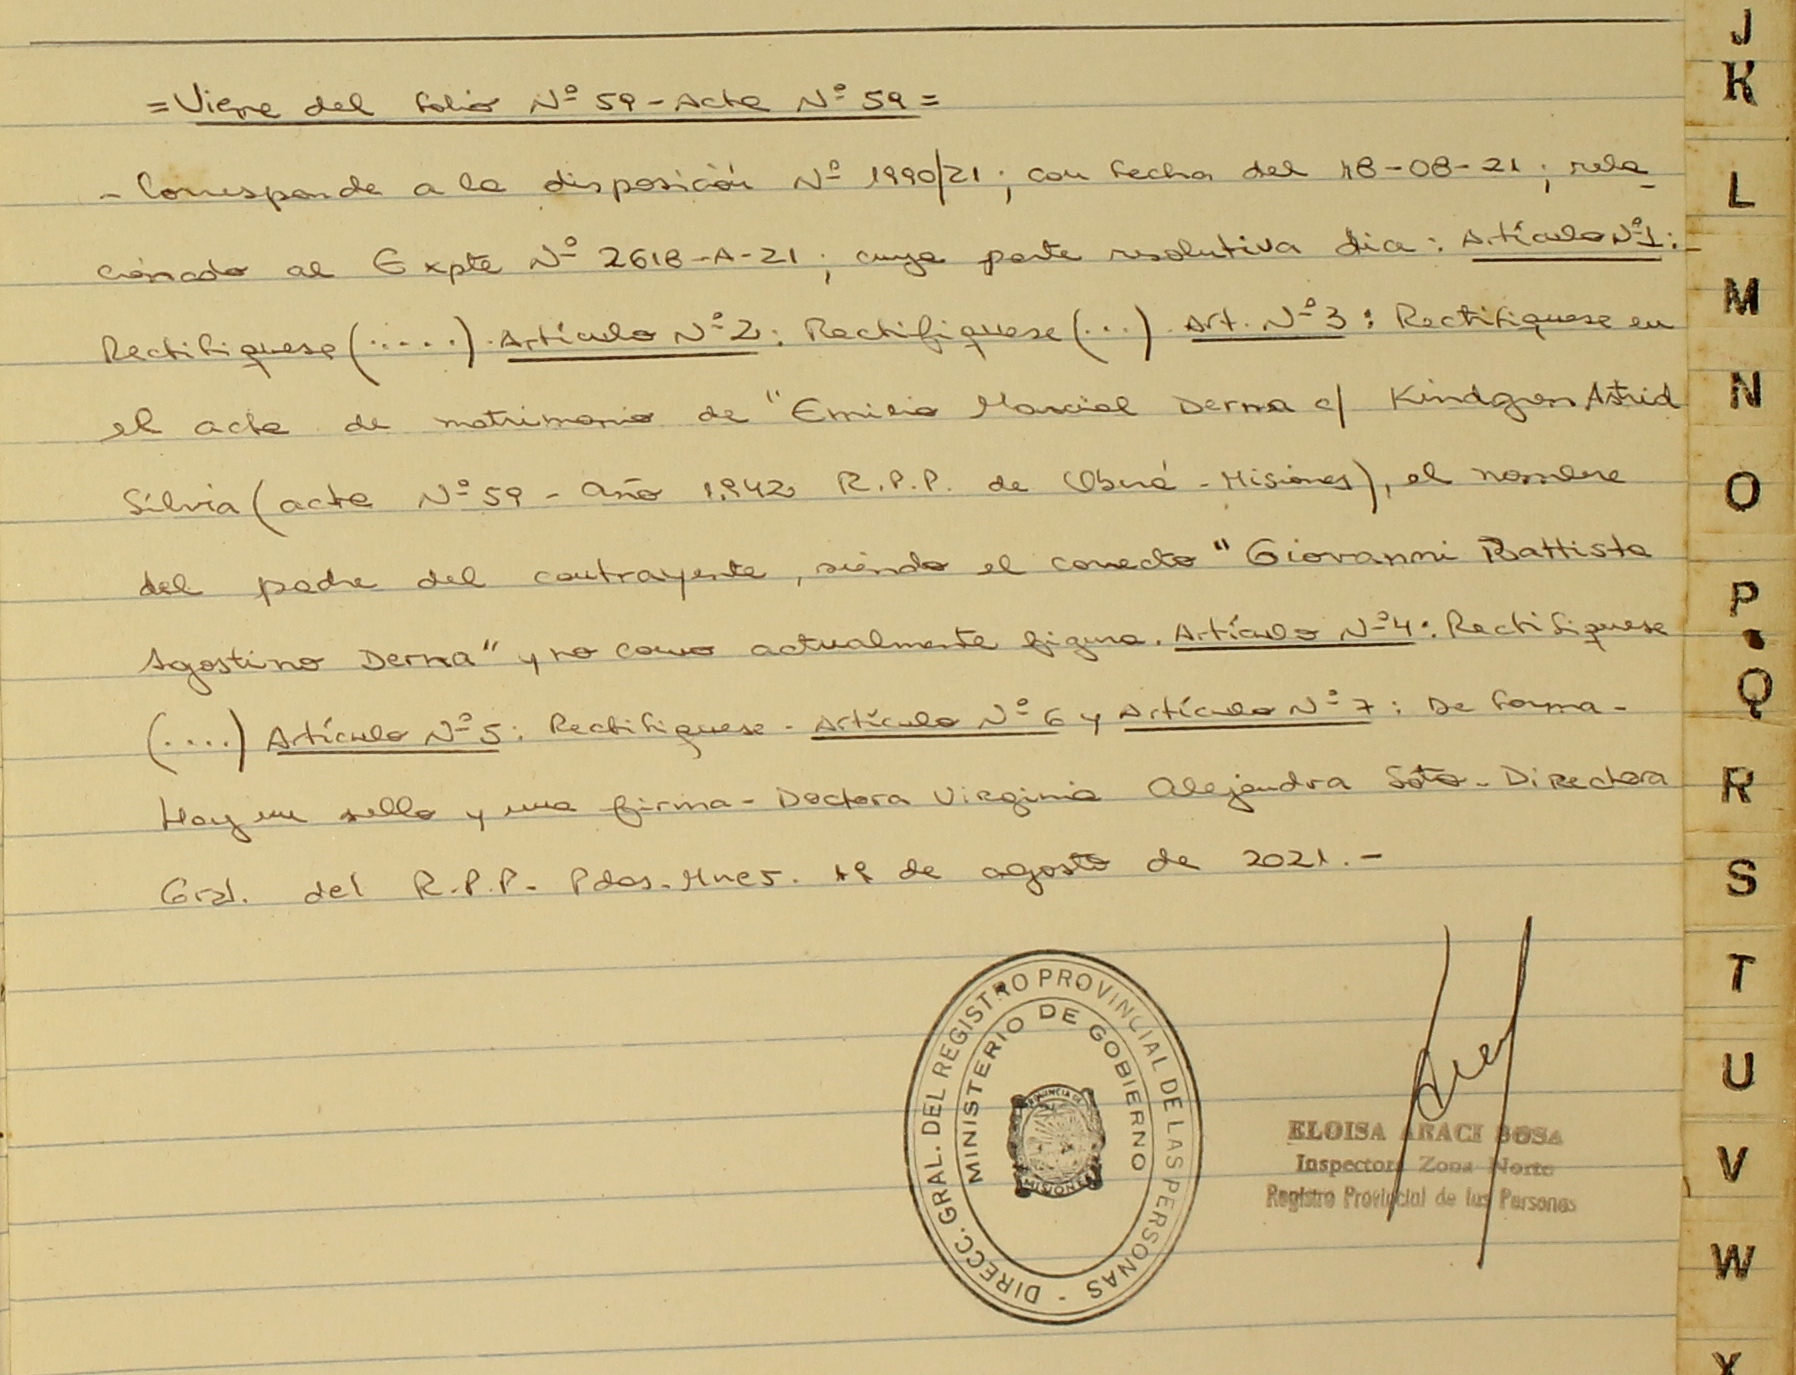 = Viene del folio Nº 59 - Acta Nº 59 =
- Corresponde a la disposición Nº 1990/21; con fecha del 18-08-21; rela
cionado al Expte Nº 2618-A-21; cuya parte resolutiva dice: Artículo Nº1:-
Rectifiquese (.....). Artículo Nº2: Rectifiquese (...). Art. Nº3: Rectifiquese en
el acta de matrimonio de "Emilio Marcial Derna c/ Kindgren Astrid
Silvia (acta Nº 59 - Año 1.942 R.P.P. de Oberá - Misiones), el nombre
del padre del contrayente, siendo el correcto "Giovanni Battista
Agostino Derna" y no como actualmente figura. Artículo Nº4: Rectifiquese
(....) Artículo Nº5: Rectifiquese - Artículo Nº6 y Artículo Nº7: De forma -
Hay un sello y una firma - Doctora Virginia Alejandra Soto - Directora
Gral. del R.P.P. Pdas. Mnes. 19 de agosto de 2021.-
DIRECC. GRAL. DEL REGISTRO PROVINCIAL DE LAS PERSONAS -
MINISTERIO DE GOBIERNO
PROVINCIA DE
MISIONES
ELOISA ARACI SOSA
Inspectora Zona Norte
Registro Provincial de las Personas
J
K
L
M
N
O
P
Q
R
S
T
U
V
W
X